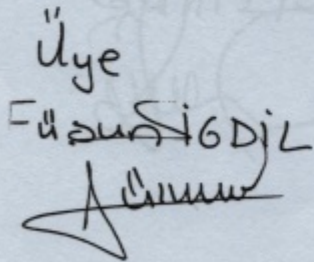 Üye
Füsun İGDİL